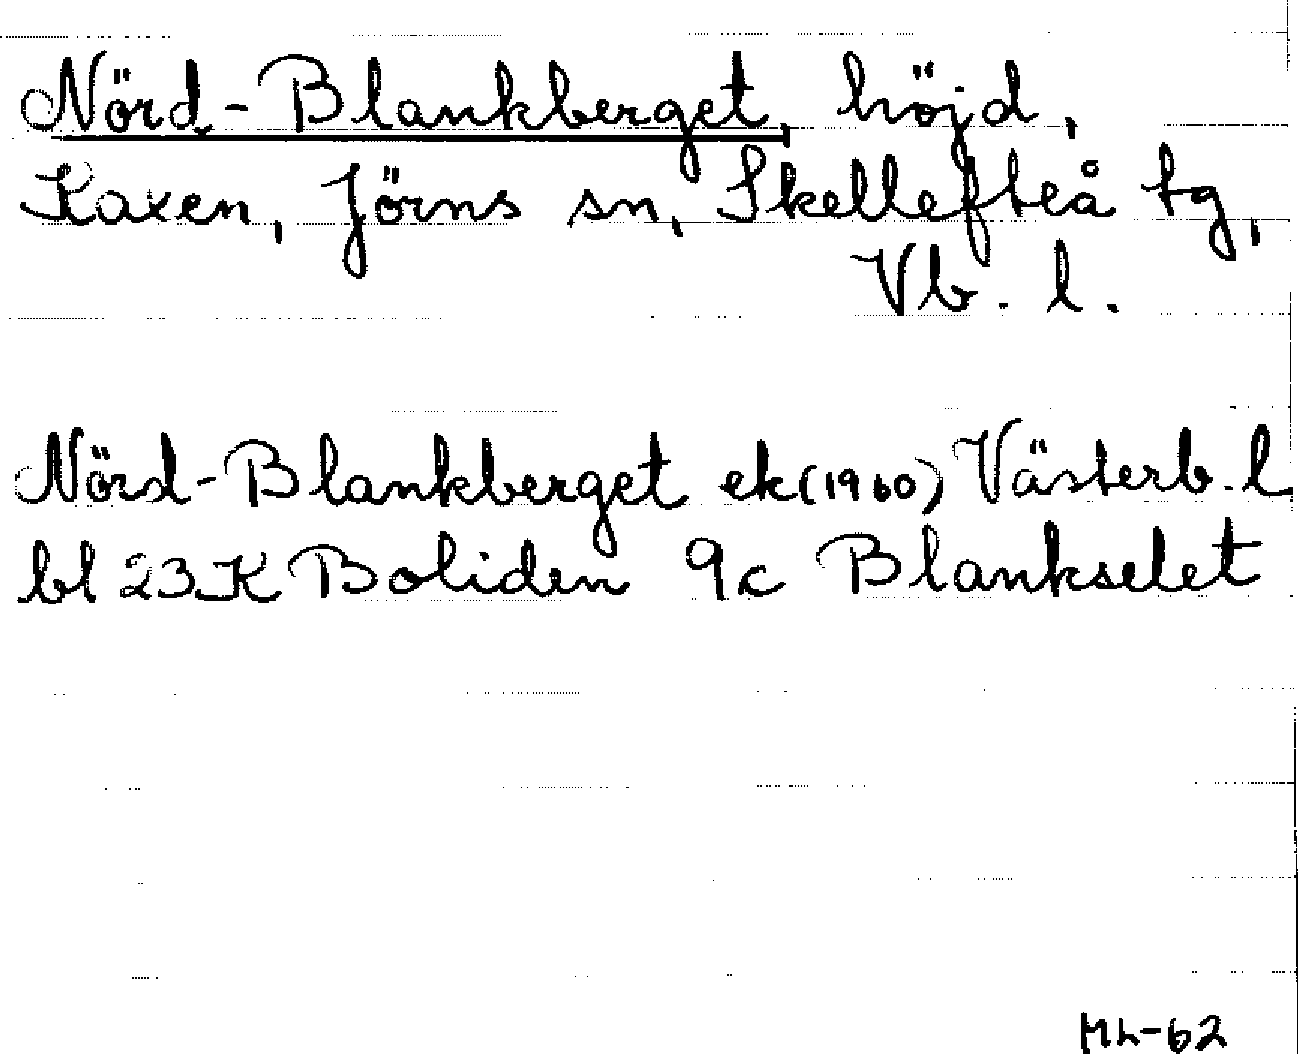 Nörd-Blankberget, höjd,
Kaxen, Jörns sn, Skellefteå tg,
Vb. l.
Nörd-Blankberget ek (1960) Västerb. l
bl 23 K Boliden 9c Blankselet
ML-62